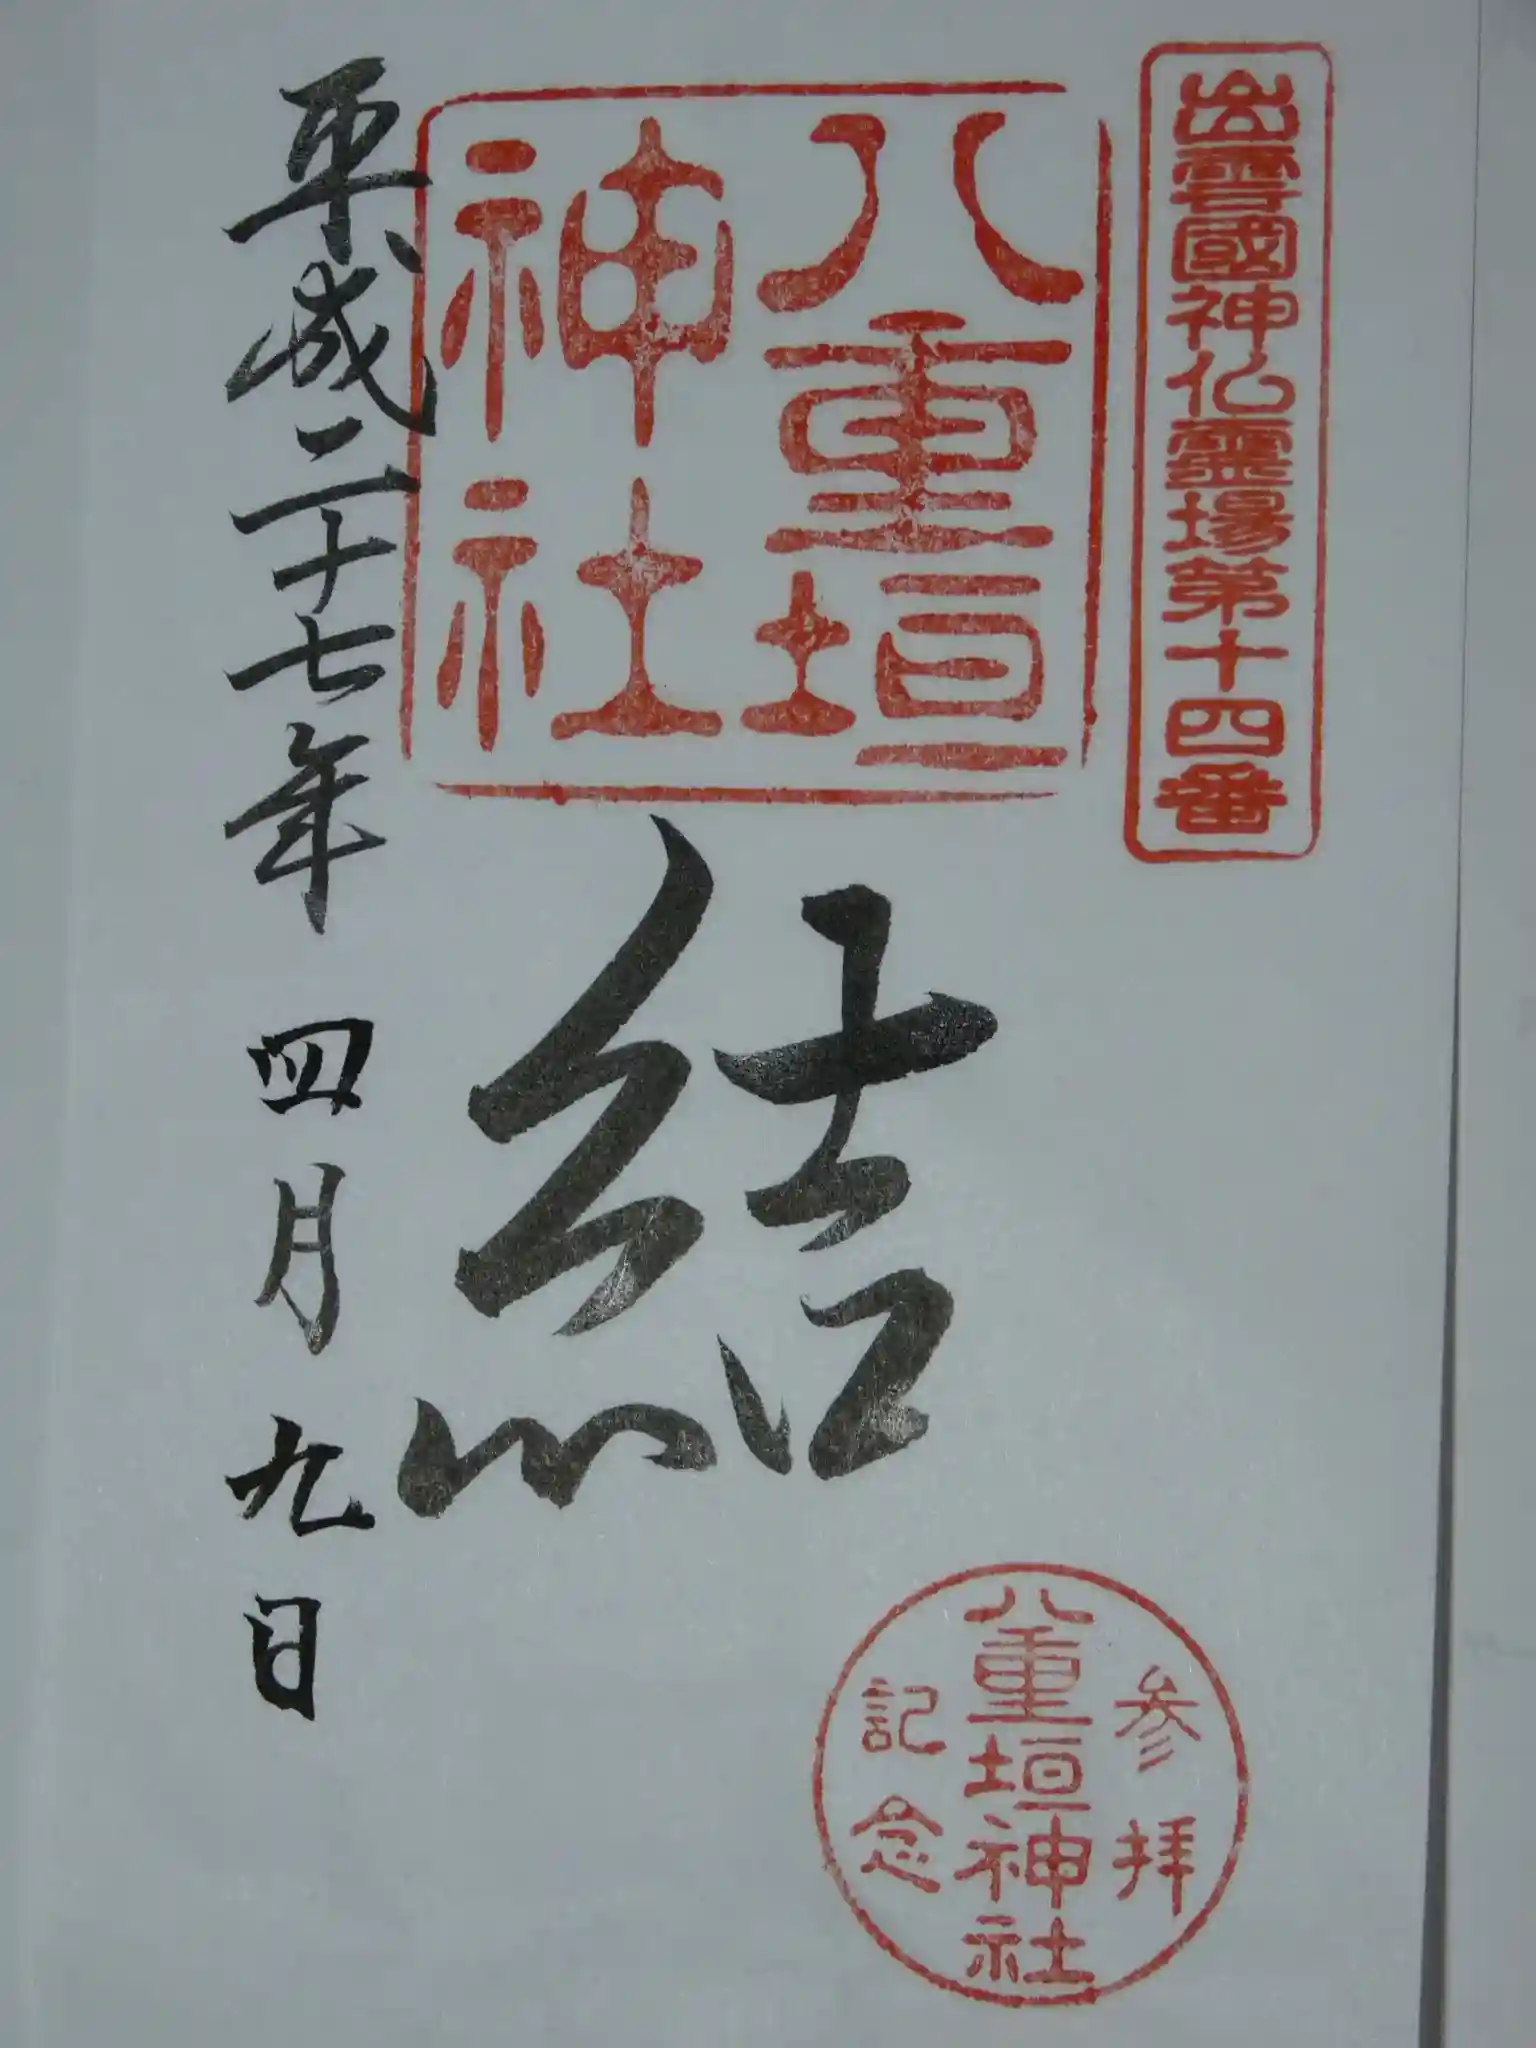 出雲國神仏霊場第十四番
八重垣
神社
結
平成二十七年 四月九日
参拝
八重垣神社
記念